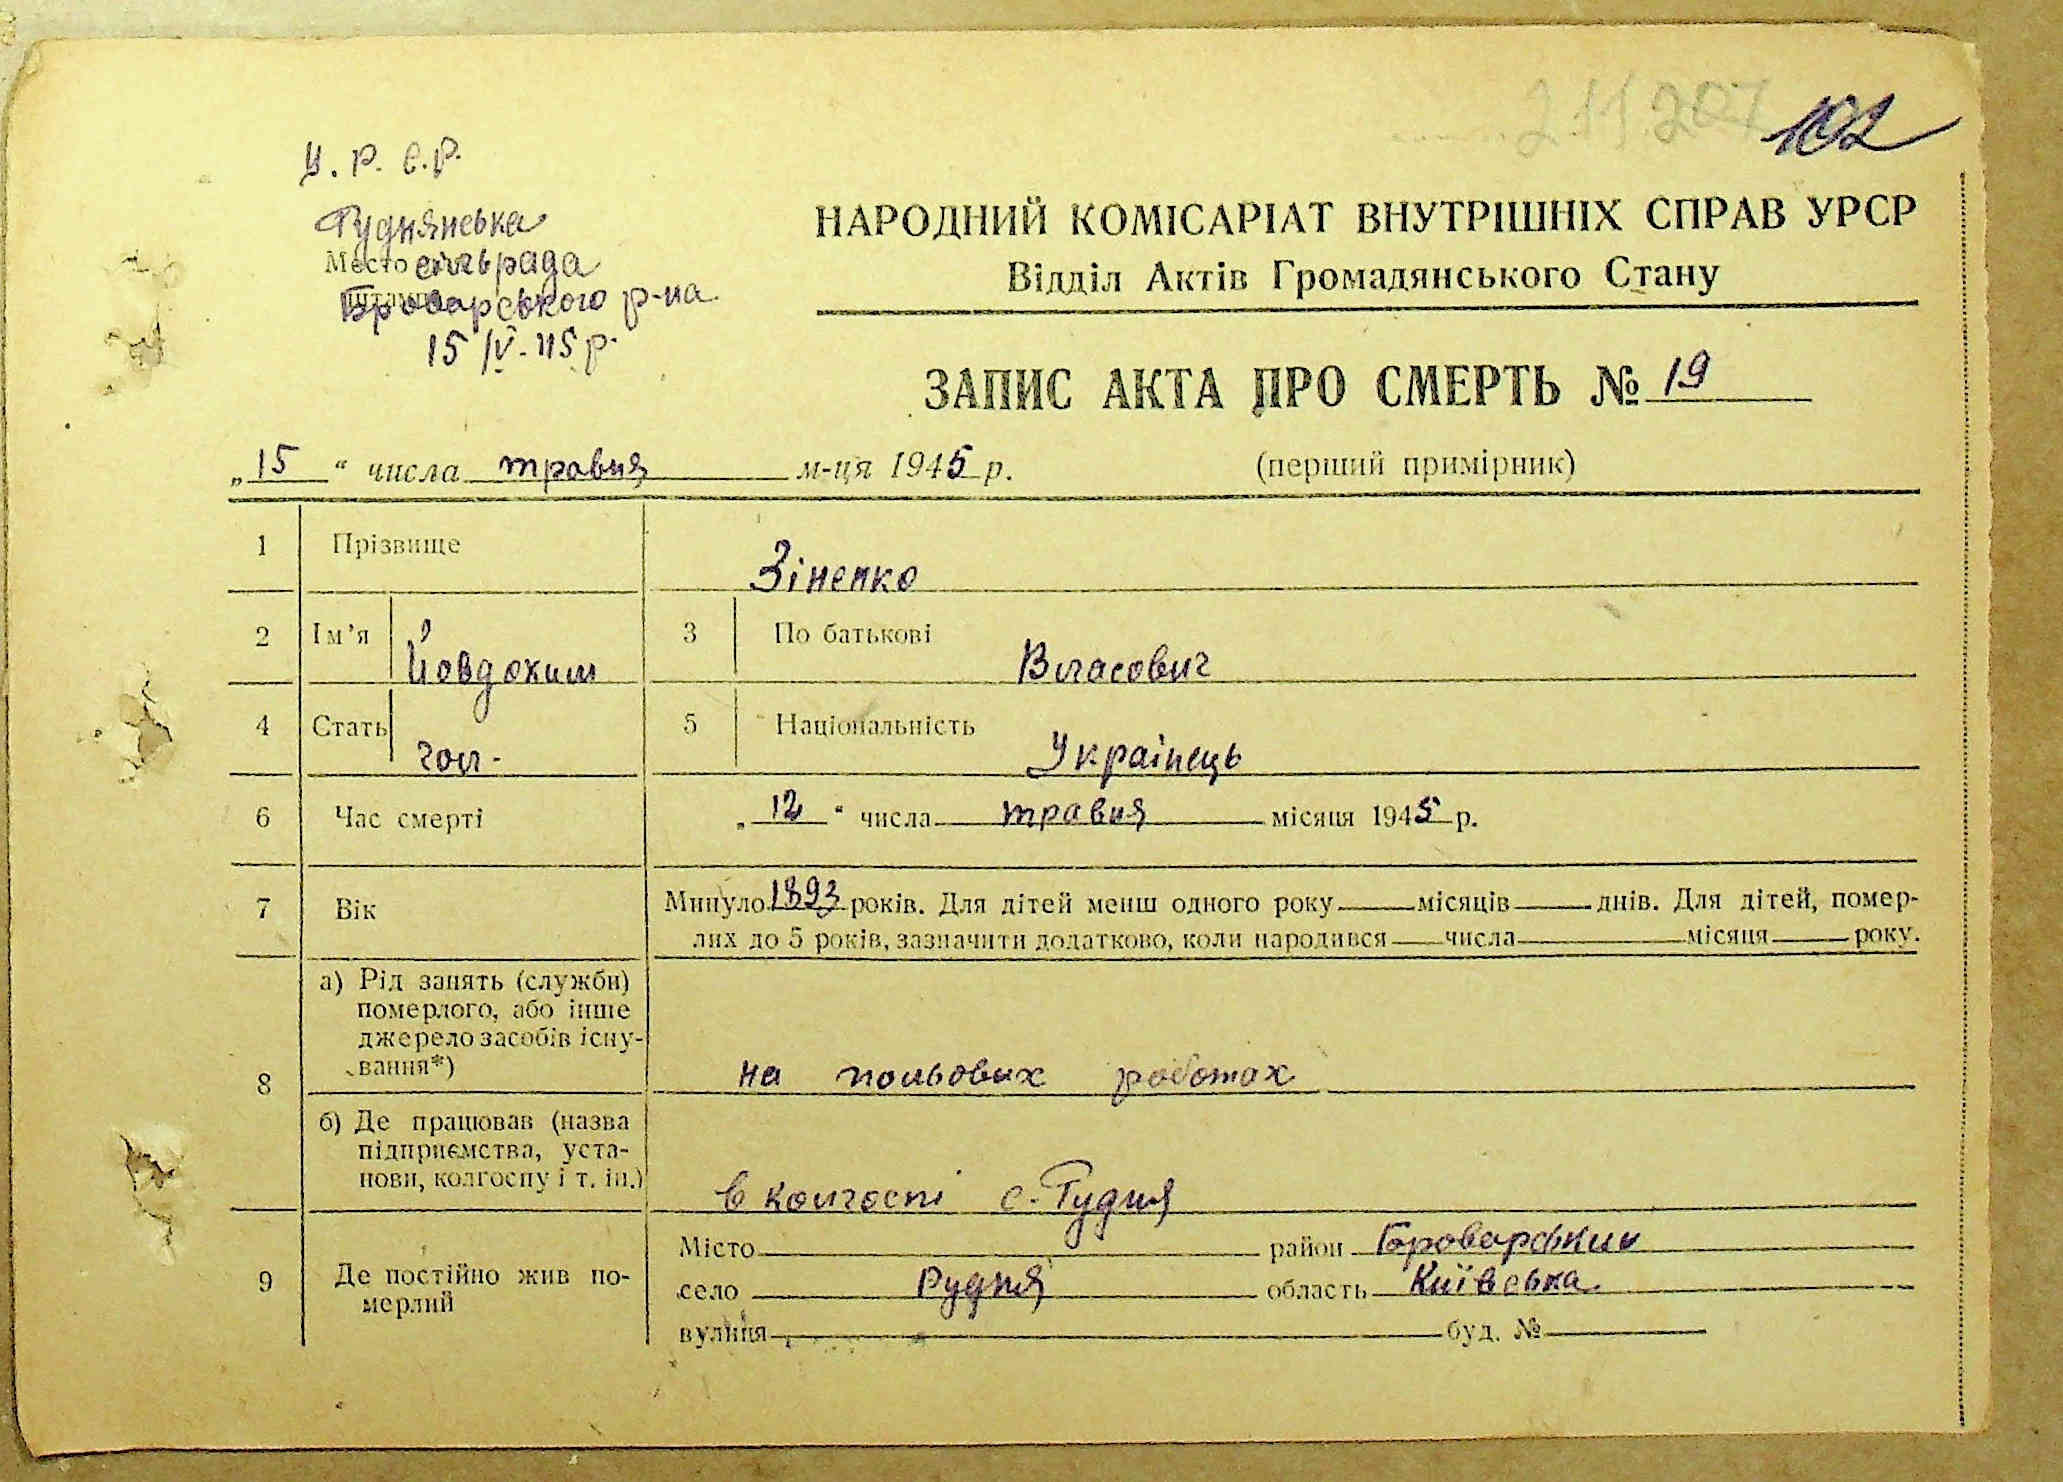 211.207 102
У. Р. С. Р.
Руднянська
Место сільрада
Броварського р-на
15/V-45 р.
НАРОДНИЙ КОМІСАРІАТ ВНУТРІШНІХ СПРАВ УРСР
Відділ Актів Громадянського Стану
ЗАПИС АКТА ПРО СМЕРТЬ № 19
„15“ числа травня м-ця 1945 р. (перший примірник)
1 Прізвище Зіненко
2 Ім’я Йовдохим 3 По батькові Власович
4 Стать чол. 5 Національність Українець
6 Час смерті „12“ числа травня місяця 1945 р.
7 Вік Минуло 1893 років. Для дітей менш одного року місяців днів. Для дітей, помер-
лих до 5 років, зазначити додатково, коли народився числа місяця року.
8 а) Рід занять (служби)
померлого, або інше
джерело засобів існу-
вання*) на польових роботах
б) Де працював (назва
підприємства, уста-
нови, колгоспу і т. ін.) в колгоспі с. Рудня
9 Де постійно жив по-
мерлий
Місто район Броварський
село Рудня область Київська
вулиця буд. №